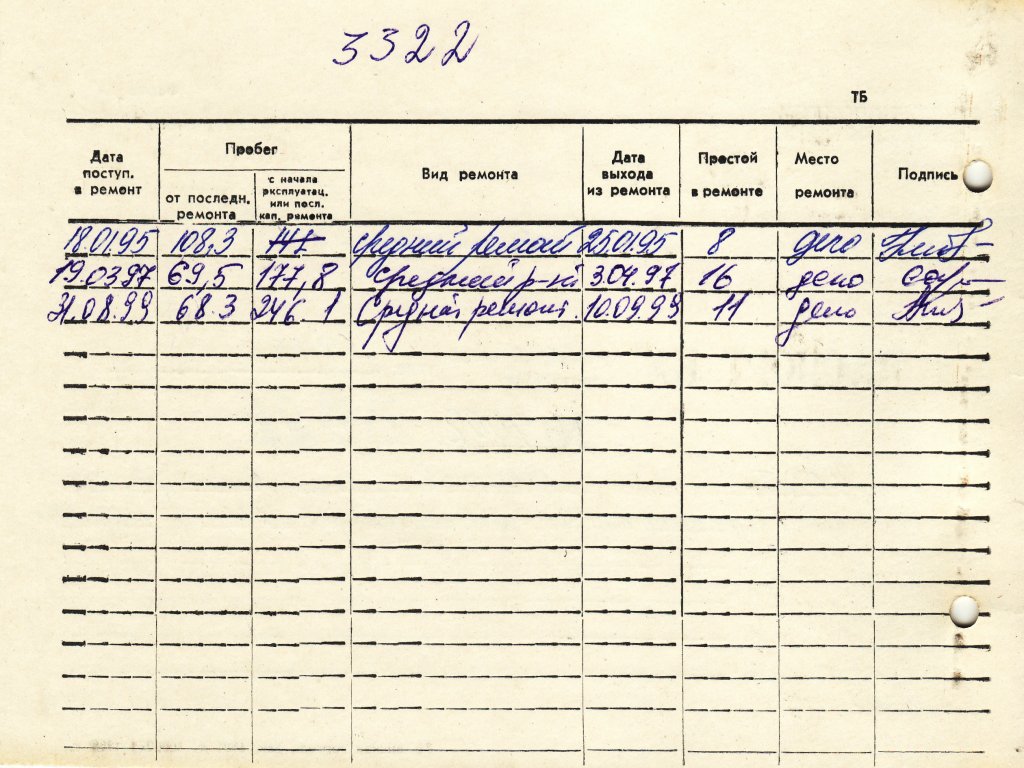 3322
ТБ
Дата поступ. в ремонт
Пробег
от последн. ремонта
с начала эксплуатац. или посл. кап. ремонта
Вид ремонта
Дата выхода из ремонта
Простой в ремонте
Место ремонта
Подпись
18.01.95 108,3 средний ремонт 25.01.95 8 депо
19.03.97 69,5 177,8 средний р-нт 3.04.97 16 депо
31.08.99 68.3 246 1 Средний ремонт. 10.09.99 11 депо